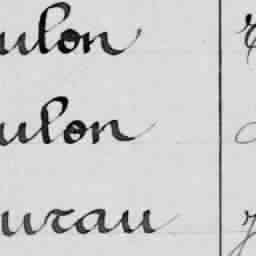 ulon
ulon
urau